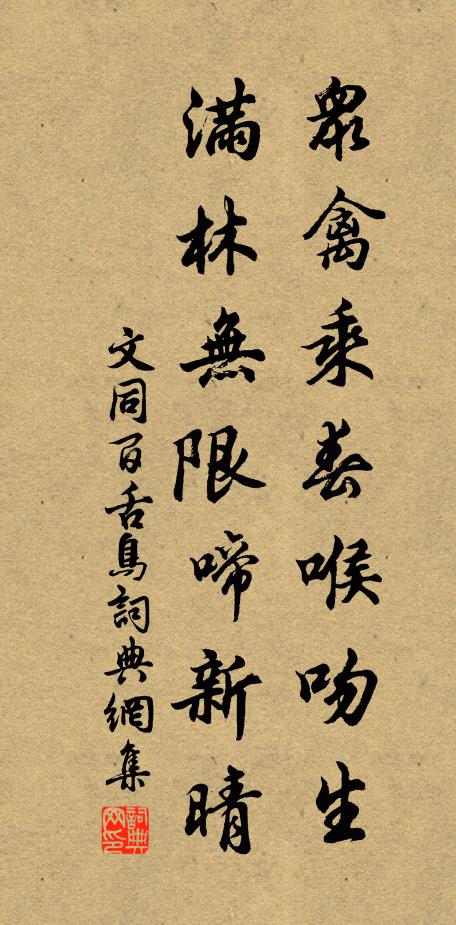 眾禽乘春喉吻生
滿林無限啼新晴
文同百舌鳥詞典網集
詞典網印